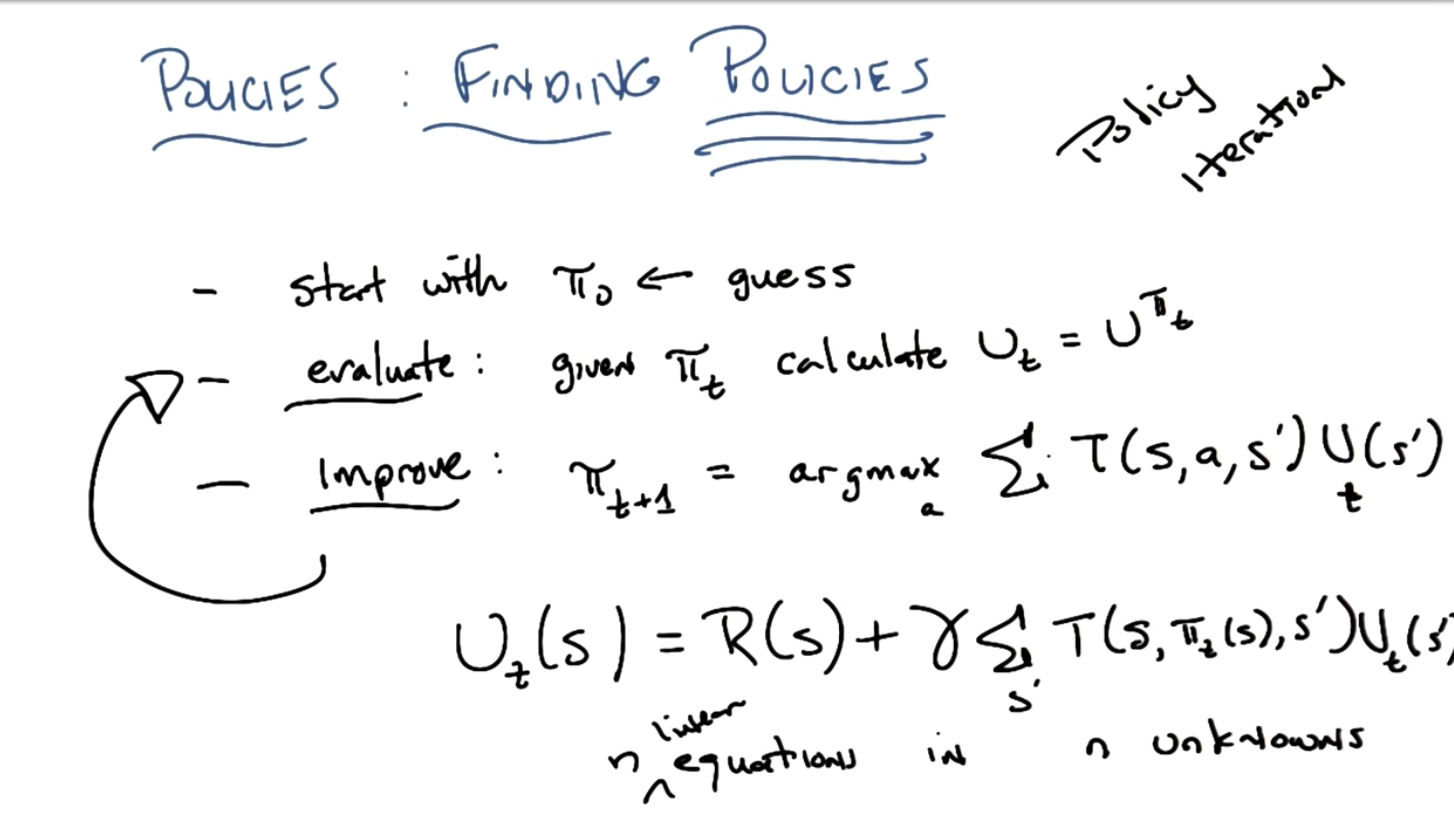 POLICIES : FINDING POLICIES
Policy
Iteration
- start with π₀ ← guess
- evaluate: given π_t calculate U_t = U^π_t
- Improve: π_t+1 = argmax_a Σ T(s,a,s') U_t(s')
U_t(s) = R(s) + γ Σ_s' T(s, π_t(s), s') U_t(s')
n ^ linear equations in n unknowns